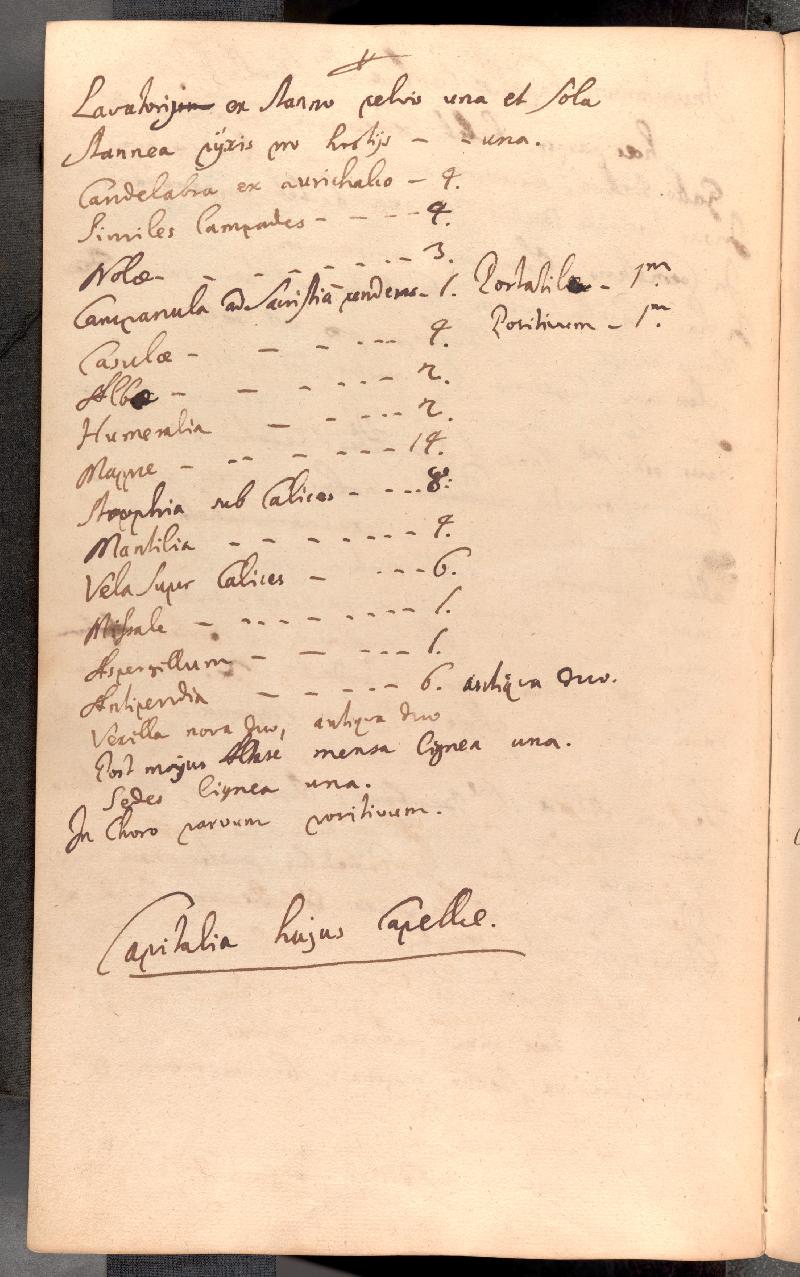 Lavatorium ex stanno pelvis una et sola
Stannea pÿxis pro hostijs - - una.
Candelabra ex aurichalco - 4.
Similes Lampades - - - - 4.
Nolæ - - - - - - - 3.
Campanula ad Sacristiã pendens - 1. Portatile - 1m.
Casulæ - - - - - - 4. Positivum - 1m.
Albæ - - - - - - 2.
Humeralia - - - - - 2.
Mappe - - - - - - - 14.
Strophia sub Calices - - - - 8.
Mantilia - - - - - - - 4.
Vela super Calices - - - - 6.
Missale - - - - - - - - - 1.
Aspergillum - - - - - 1.
Antipendia - - - - - 6. antiqva duo.
Vexilla nova duo, antiqva duo
Post majus Altare mensa lignea una.
Sedes lignea una.
In Choro parvum positivum.
Capitalia hujus Capellæ.